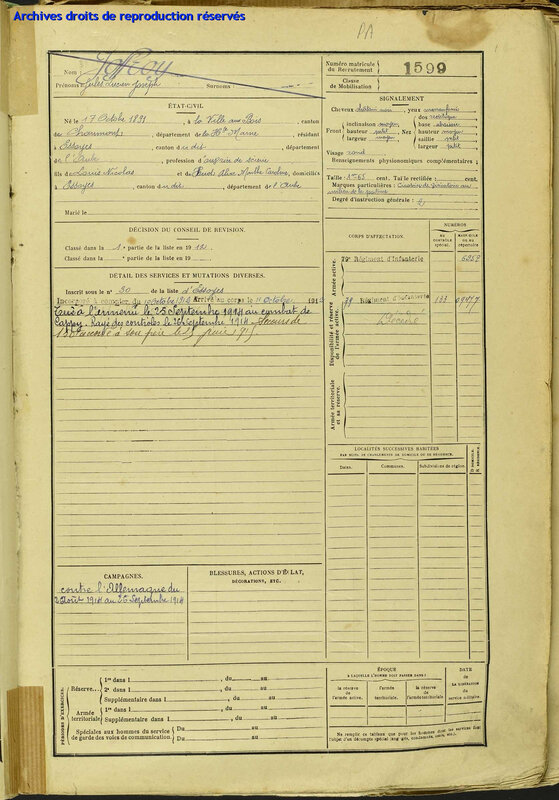 Archives droits de reproduction réservés
PA
Nom :
Prénoms : Jules Lucien Joseph Surnoms :
Numéro matricule du Recrutement 1599
Classe de Mobilisation
ÉTAT-CIVIL
Né le 17 Octobre 1891, à la Ville aux Bois, canton
de Chaumont, département de la Hte Marne, résidant
à Essoyes, canton d dit, département
de l'Aube, profession d
fils de Louis Nicolas et de
à Essoyes, canton d dit, département de l'Aube
Marié le
SIGNALEMENT
Cheveux châtain , yeux
dos rectiligne
Front inclinaison moyen Nez base
hauteur petit hauteur moyen
largeur largeur petit
Visage rond
Renseignements physionomiques complémentaires :
Taille : 1m 65 cent. Taille rectifiée : cent.
Marques particulières :
Degré d'instruction générale : 2
DÉCISION DU CONSEIL DE RÉVISION.
Classé dans la 1e partie de la liste en 1912
Classé dans la e partie de la liste en 19
DÉTAIL DES SERVICES ET MUTATIONS DIVERSES.
Inscrit sous le n° 30 de la liste d'Essoyes
Incorporé à compter du 10 octobre 1912 Arrivé au corps le 11 Octobre 1912
Tué à l'ennemi le 25 Septembre 1914 au combat de
Cappy. Rayé des contrôles le 26 Septembre 1914. Secours de
150f accordé à son père le 25
CORPS D'AFFECTATION.
NUMÉROS
AU CONTRÔLE SPÉCIAL.
MATRICULE OU AU RÉPERTOIRE
Armée active.
79e Régiment d'Infanterie
Disponibilité et réserve de l'armée active.
79 Régiment d'Infanterie
Décédé
Armée territoriale et sa réserve.
LOCALITÉS SUCCESSIVES HABITÉES
PAR SUITE DE CHANGEMENTS DE DOMICILE OU DE RÉSIDENCE.
Dates. Communes. Subdivisions de région.
D. DOMICILE. R. RÉSIDENCE.
CAMPAGNES.
contre l'Allemagne du
2 Août 1914 au 25 Septembre 1914
BLESSURES, ACTIONS D'ÉCLAT,
DÉCORATIONS, ETC.
PÉRIODES D'EXERCICES.
Réserve.
1re dans l , du au
2e dans l , du au
Supplémentaire dans l , du au
Armée territoriale.
1re dans l , du au
Supplémentaire dans l , du au
Spéciales aux hommes du service de garde des voies de communication.
Du au
Du au
ÉPOQUE
À LAQUELLE L'HOMME DOIT PASSER DANS :
la réserve de l'armée active.
l'armée territoriale.
la réserve de l'armée territoriale
DATE
de LA LIBÉRATION du service militaire.
Ne remplir ce tableau que pour les hommes dont les services font
l'objet d'un décompte spécial